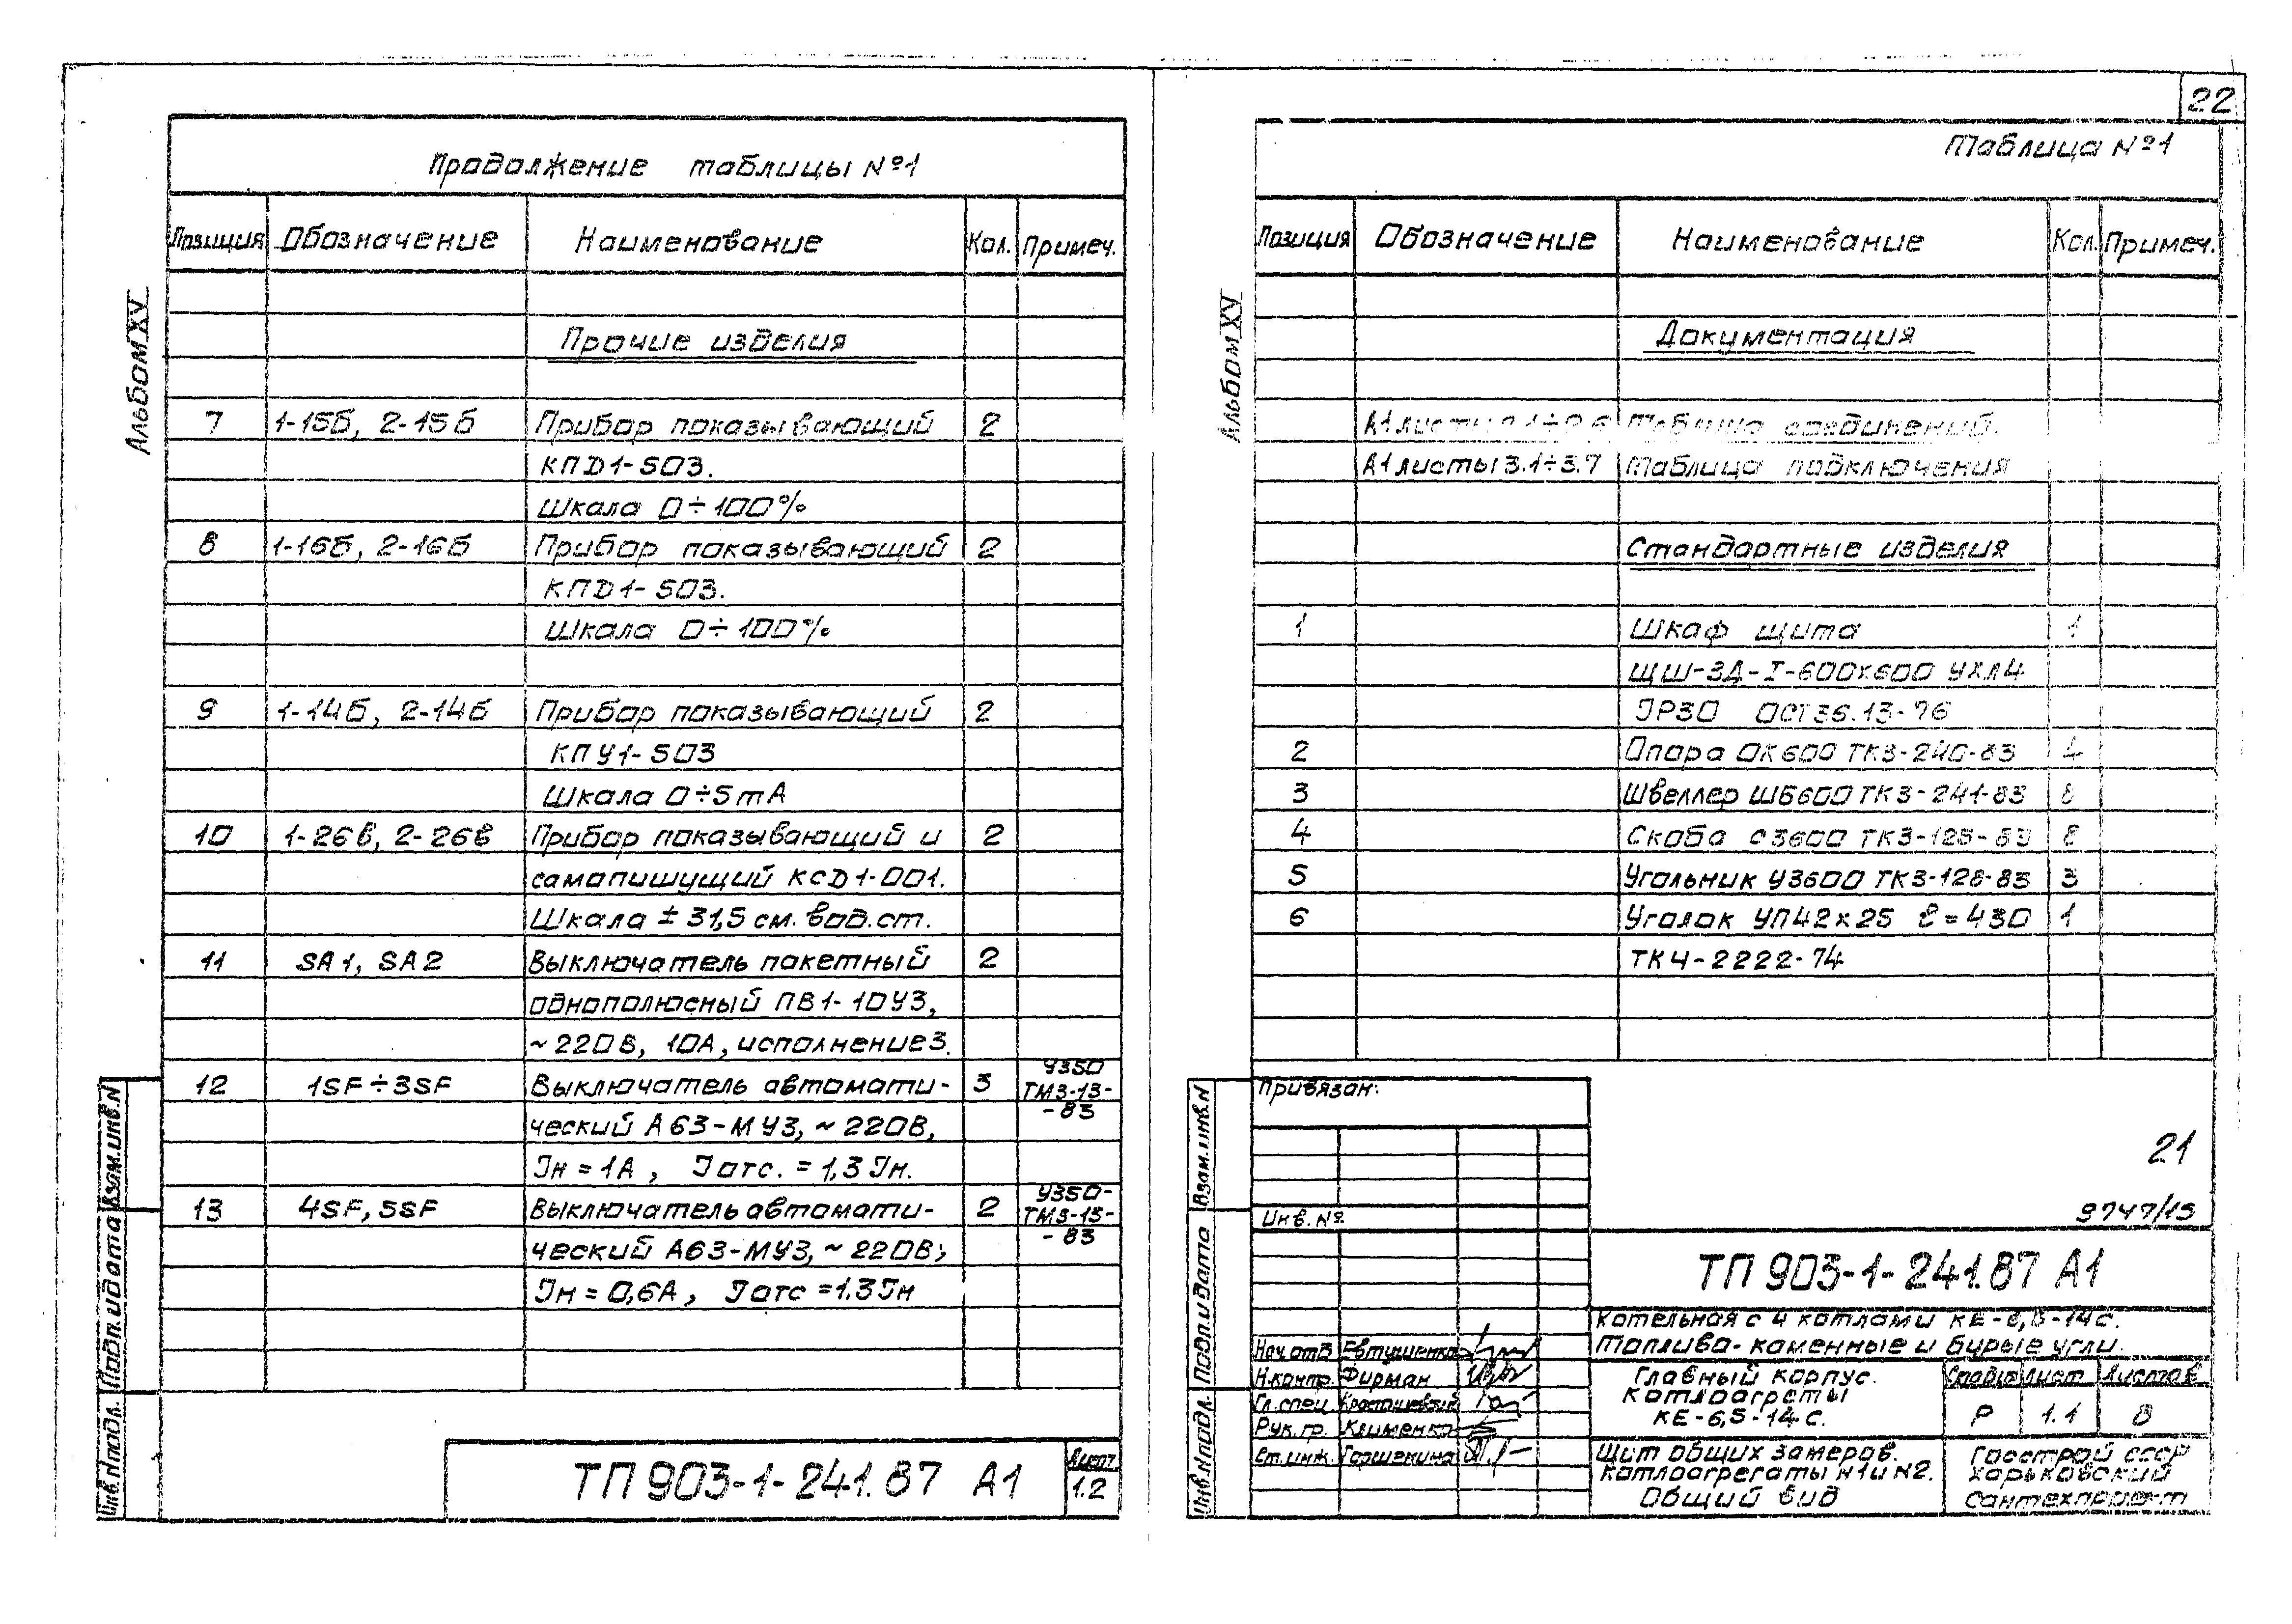 Продолжение таблицы №1
Позиция Обозначение Наименование Кол. Примеч.
Прочие изделия
7 1-15б, 2-15б Прибор показывающий 2
КПД1-503.
Шкала 0÷100%
8 1-16б, 2-16б Прибор показывающий 2
КПД1-503.
Шкала 0÷100%
9 1-14б, 2-14б Прибор показывающий 2
КПУ1-503
Шкала 0÷5mA
10 1-26в, 2-26в Прибор показывающий и 2
самопишущий КСД1-001.
Шкала ±31,5 см. вод. ст.
11 SA1, SA2 Выключатель пакетный 2
однополюсный ПВ1-10У3,
~220В, 10А, исполнение 3.
12 1SF÷3SF Выключатель автомати- 3 У350
ТМ3-13-
-83
ческий А63-МУ3, ~220В,
Iн = 1А, Iотс. = 1,3 Iн.
13 4SF, 5SF Выключатель автомати- 2 У350-
ТМ3-13-
-83
ческий А63-МУ3, ~220В;
Iн = 0,6А, Iотс = 1.3 Iн
Альбом XV
Взам. инв. N
Подп. и дата
Инв. N подл.
ТП 903-1-241.87 А1
Лист
1.2
22
Таблица №1
Позиция Обозначение Наименование Кол. Примеч.
Документация
А1 листы Таблица соединений.
А1 листы 3.1÷3.7 Таблица подключения
Стандартные изделия
1 Шкаф щита 1
ЩШ-ЗД-I-600х600 УХЛ4
IР30 ОСТ 36.13-76
2 Опора ОК600 ТК3-240-83 4
3 Швеллер ШБ600 ТК3-241-83 8
4 Скоба С3600 ТК3-125-83 8
5 Угольник У3600 ТК3-128-83 3
6 Уголок УП42х25 ℓ=430 1
ТК4-2222-74
Альбом XV
Взам. инв. N
Подп. и дата
Инв. N подл.
Привязан:
Инв. №
21
9747/15
ТП 903-1-241.87 А1
Котельная с 4 котлами КЕ-6,5-14с.
Топливо- каменные и бурые угли.
Нач. отд. Евтушенко
Н.контр. Фирман
Гл. спец.
Рук. гр. Клименко
Ст. инж. Горшенина
Главный корпус.
Котлоагреты
КЕ-6,5-14с.
Стадия Лист Листов
Р 1.1 8
Щит общих замеров.
Котлоагрегаты N1 и N2.
Общий вид
Госстрой СССР
Харьковский
Сантехпроект